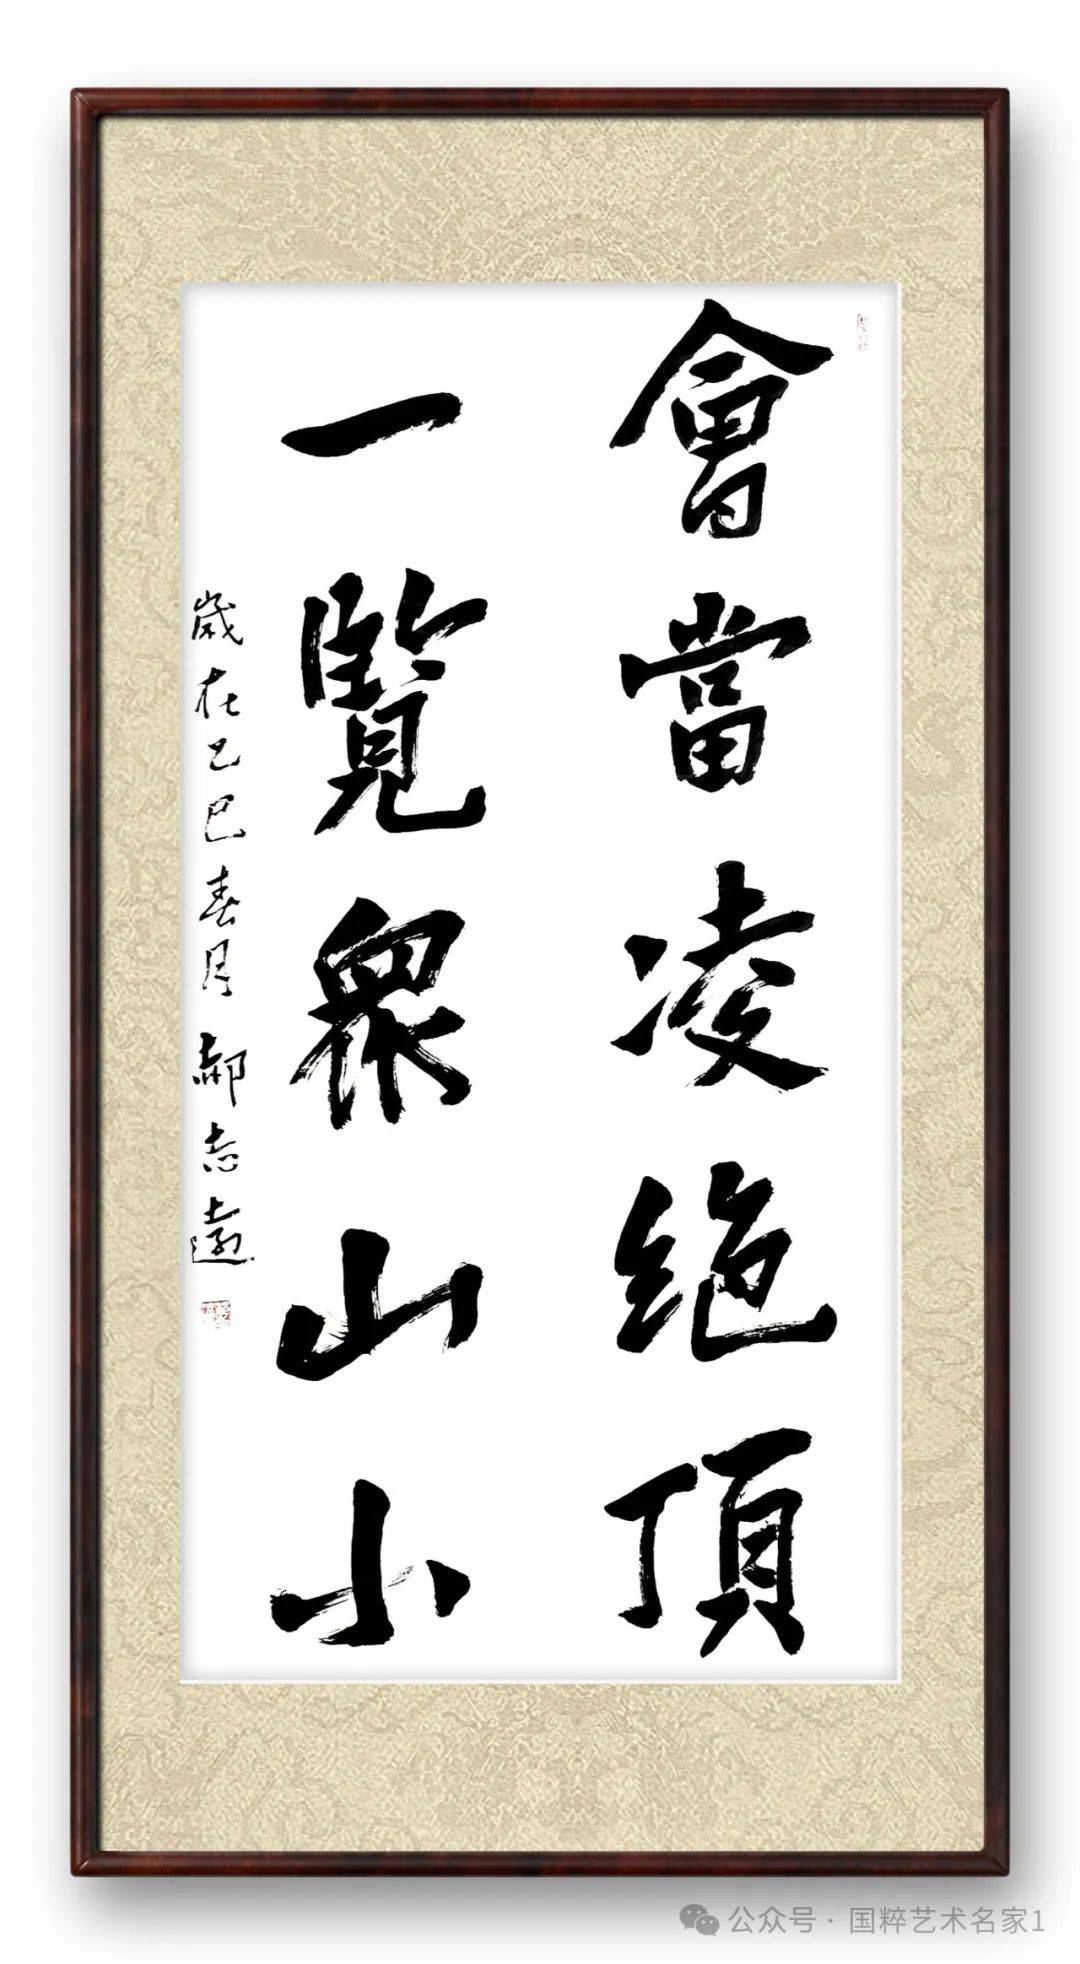 會當凌絶頂
一覽衆山小
歲在乙巳春月郝志遠
公众号·国粹艺术名家1